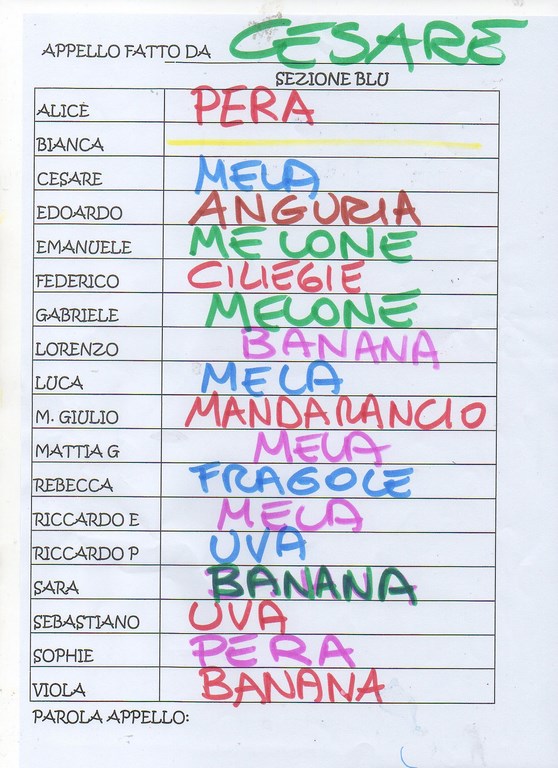 APPELLO FATTO DA CESARE
SEZIONE BLU
ALICE PERA
BIANCA
CESARE MELA
EDOARDO ANGURIA
EMANUELE MELONE
FEDERICO CILIEGIE
GABRIELE MELONE
LORENZO BANANA
LUCA MELA
M. GIULIO MANDARANCIO
MATTIA G MELA
REBECCA FRAGOLE
RICCARDO E MELA
RICCARDO P UVA
SARA BANANA
SEBASTIANO UVA
SOPHIE PERA
VIOLA BANANA
PAROLA APPELLO: